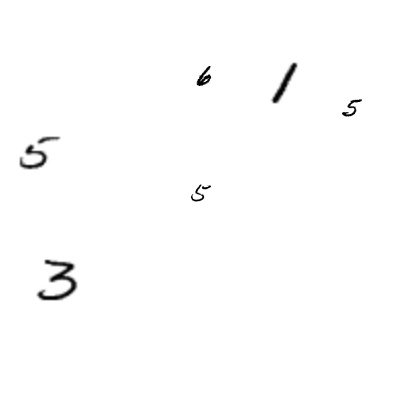 6 1 5
5
5
3